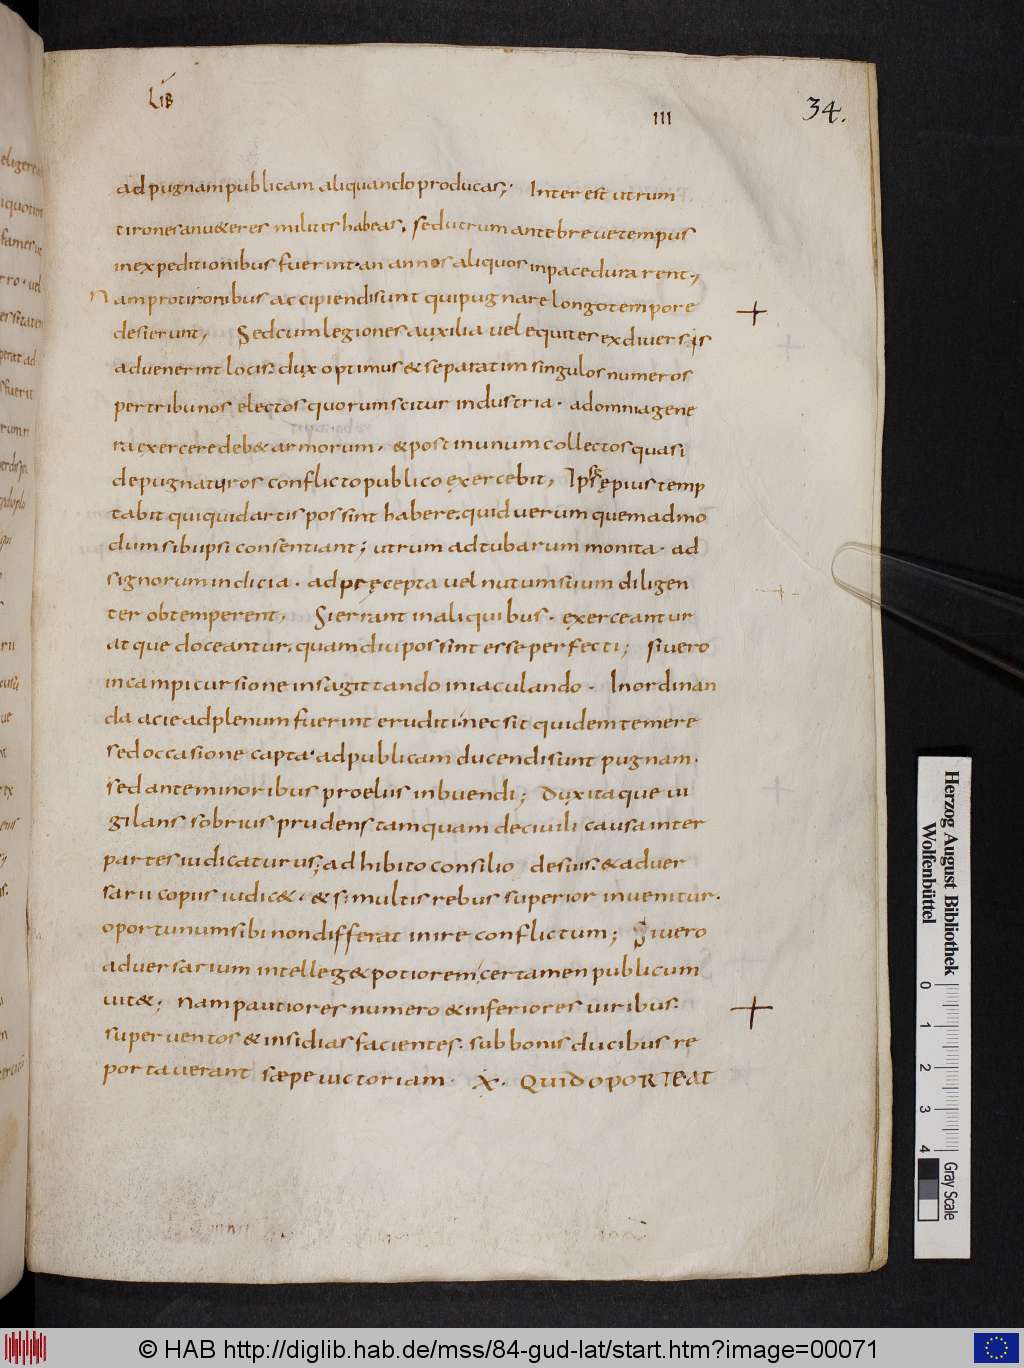 LIB
III
34.
ad pugnam publicam aliquando producas; Interest utrum
tirones anu&eres milites habeas. sed utrum ante breve tempus
inexpeditionibus fuerint. an annos aliquos inpace durarent;
Nam protironibus accipiendi sunt qui pugnare longo tempore
desierunt, Sed cum legiones auxilia vel equites ex diversis
advenerint locis; dux optimus & separatim singulos numeros
per tribunos electos quorum scitur industria. ad omnia gene
ra exercere deb& armorum. & post inunum collectos quasi
depugnaturos conflicto publico exercebit, Ipse sępius temp
tabit quiquid artis possint habere. quid uerum quem ad mo
dum sibi ipsi consentiant; utrum ad tubarum monita. ad
signorum indicia. ad pręcepta uel nutum suum diligen
ter obtemperent, Si errant inaliquibus. exerceantur
at que doceantur. quamdiu possint esse perfecti; si uero
in campicursione in sagittando in iaculando. In ordinan
da acie ad plenum fuerint eruditi. nec sit quidem temere
sed occasione capta. ad publicam ducendi sunt pugnam.
sed ante minoribus proeliis inbuendi; Dux itaque ui
gilans sobrius prudens tamquam deciuili causa inter
partes iudicaturus; adhibito consilio desuis. & aduer
sarii copiis iudic&. & si multis rebus superior inuenitur.
oportunum sibi non differat inire conflictum; Si uero
aduersarium intelleg& potiorem, certamen publicum
uit&; nam pautiores numero & inferiores uiribus.
superuentos & insidias facientes. sub bonis ducibus re
portauerant saepe uictoriam. X. QUID OPORTEAT
Herzog August Bibliothek
Wolfenbüttel
0 1 2 3 4
Gray Scale
© HAB http://diglib.hab.de/mss/84-gud-lat/start.htm?image=00071